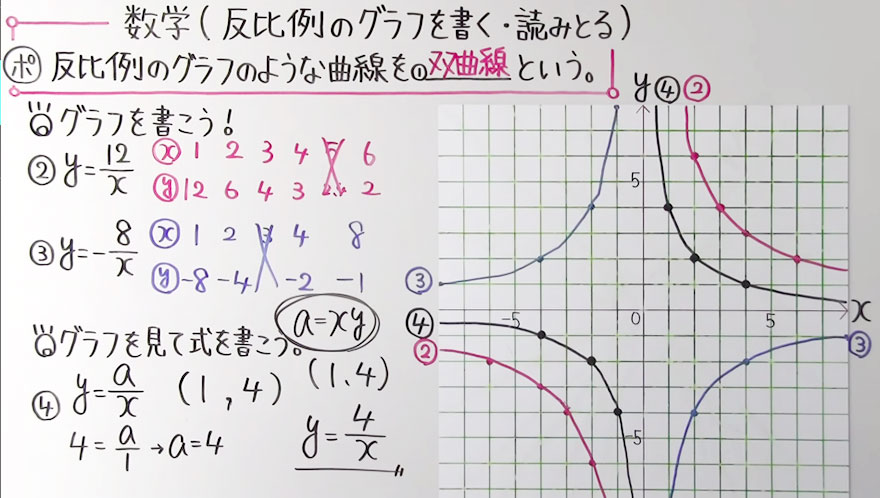 数学(反比例のグラフを書く・読みとる)
ポ 反比例のグラフのような曲線を①双曲線という。
グラフを書こう!
② y=12/x
x 1 2 3 4 5 6
y 12 6 4 3 2.4 2
③ y=-8/x
x 1 2 3 4 8
y -8 -4 -2 -1
a=xy
グラフを見て式を書こう。
④ y=a/x (1,4) (1.4)
4=a/1→a=4
y=4/x
y ④ ②
5
③
-5 0 5 x
④
②
③
-5